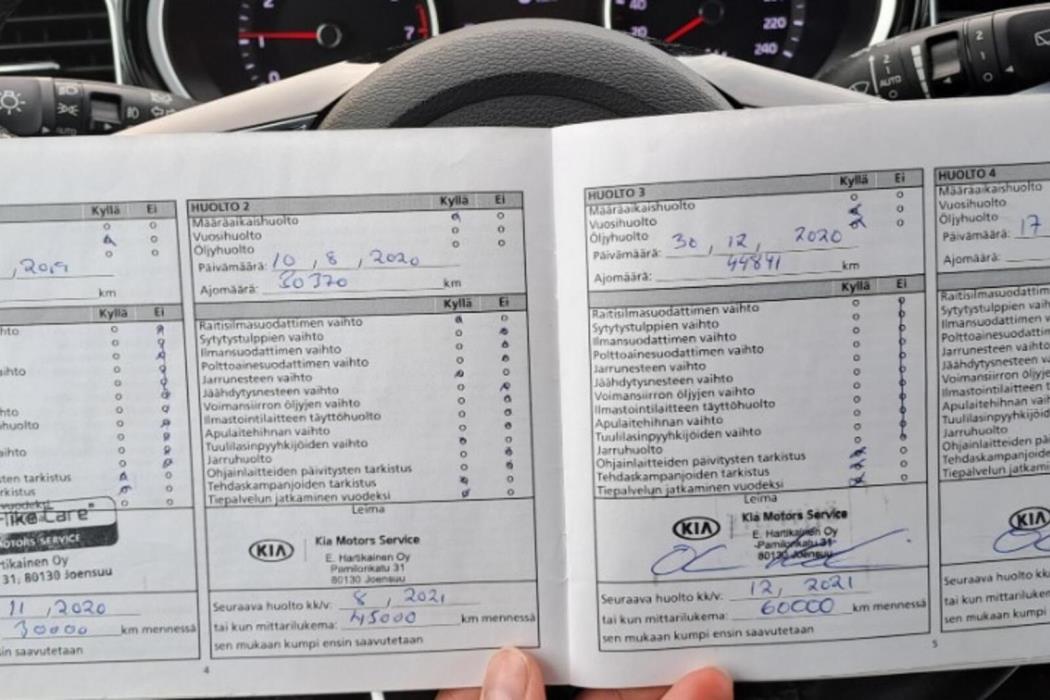 1
0
7
40
20
220
240
2
1
AUTO
0
2
1
0
AUTO
Kyllä Ei
, 2019
km
Kyllä Ei
Take Care®
MOTORS SERVICE
31, 80130 Joensuu
11, 2020
30000 km mennessä
HUOLTO 2 Kyllä Ei
Määräaikaishuolto
Vuosihuolto
Öljyhuolto
Päivämäärä: 10, 8, 2020
Ajomäärä: 30370 km
Kyllä Ei
Raitisilmasuodattimen vaihto
Sytytystulppien vaihto
Ilmansuodattimen vaihto
Polttoainesuodattimen vaihto
Jarrunesteen vaihto
Jäähdytysnesteen vaihto
Voimansiirron öljyjen vaihto
Ilmastointilaitteen täyttöhuolto
Apulaitehihnan vaihto
Tuulilasinpyyhkijöiden vaihto
Jarruhuolto
Ohjainlaitteiden päivitysten tarkistus
Tehdaskampanjoiden tarkistus
Tiepalvelun jatkaminen vuodeksi
Leima
KIA Kia Motors Service
E. Hartikainen Oy
Pamilonkatu 31
80130 Joensuu
Seuraava huolto kk/v: 8, 2021
tai kun mittarilukema: 45000 km mennessä
sen mukaan kumpi ensin saavutetaan
4
HUOLTO 3 Kyllä Ei
Määräaikaishuolto
Vuosihuolto
Öljyhuolto
Päivämäärä: 30, 12, 2020
Ajomäärä: 44841 km
Kyllä Ei
Raitisilmasuodattimen vaihto
Sytytystulppien vaihto
Ilmansuodattimen vaihto
Polttoainesuodattimen vaihto
Jarrunesteen vaihto
Jäähdytysnesteen vaihto
Voimansiirron öljyjen vaihto
Ilmastointilaitteen täyttöhuolto
Apulaitehihnan vaihto
Tuulilasinpyyhkijöiden vaihto
Jarruhuolto
Ohjainlaitteiden päivitysten tarkistus
Tehdaskampanjoiden tarkistus
Tiepalvelun jatkaminen vuodeksi
Leima
KIA Kia Motors Service
E. Hartikainen Oy
Pamilonkatu 31
80130 Joensuu
Seuraava huolto kk/v: 12, 2021
tai kun mittarilukema: 60000 km mennessä
sen mukaan kumpi ensin saavutetaan
5
HUOLTO 4
Määräaikaishuolto
Vuosihuolto
Öljyhuolto
Päivämäärä: 17
Ajomäärä:
KIA
Seuraava huolto kk
tai kun mittariluke
sen mukaan kumpi